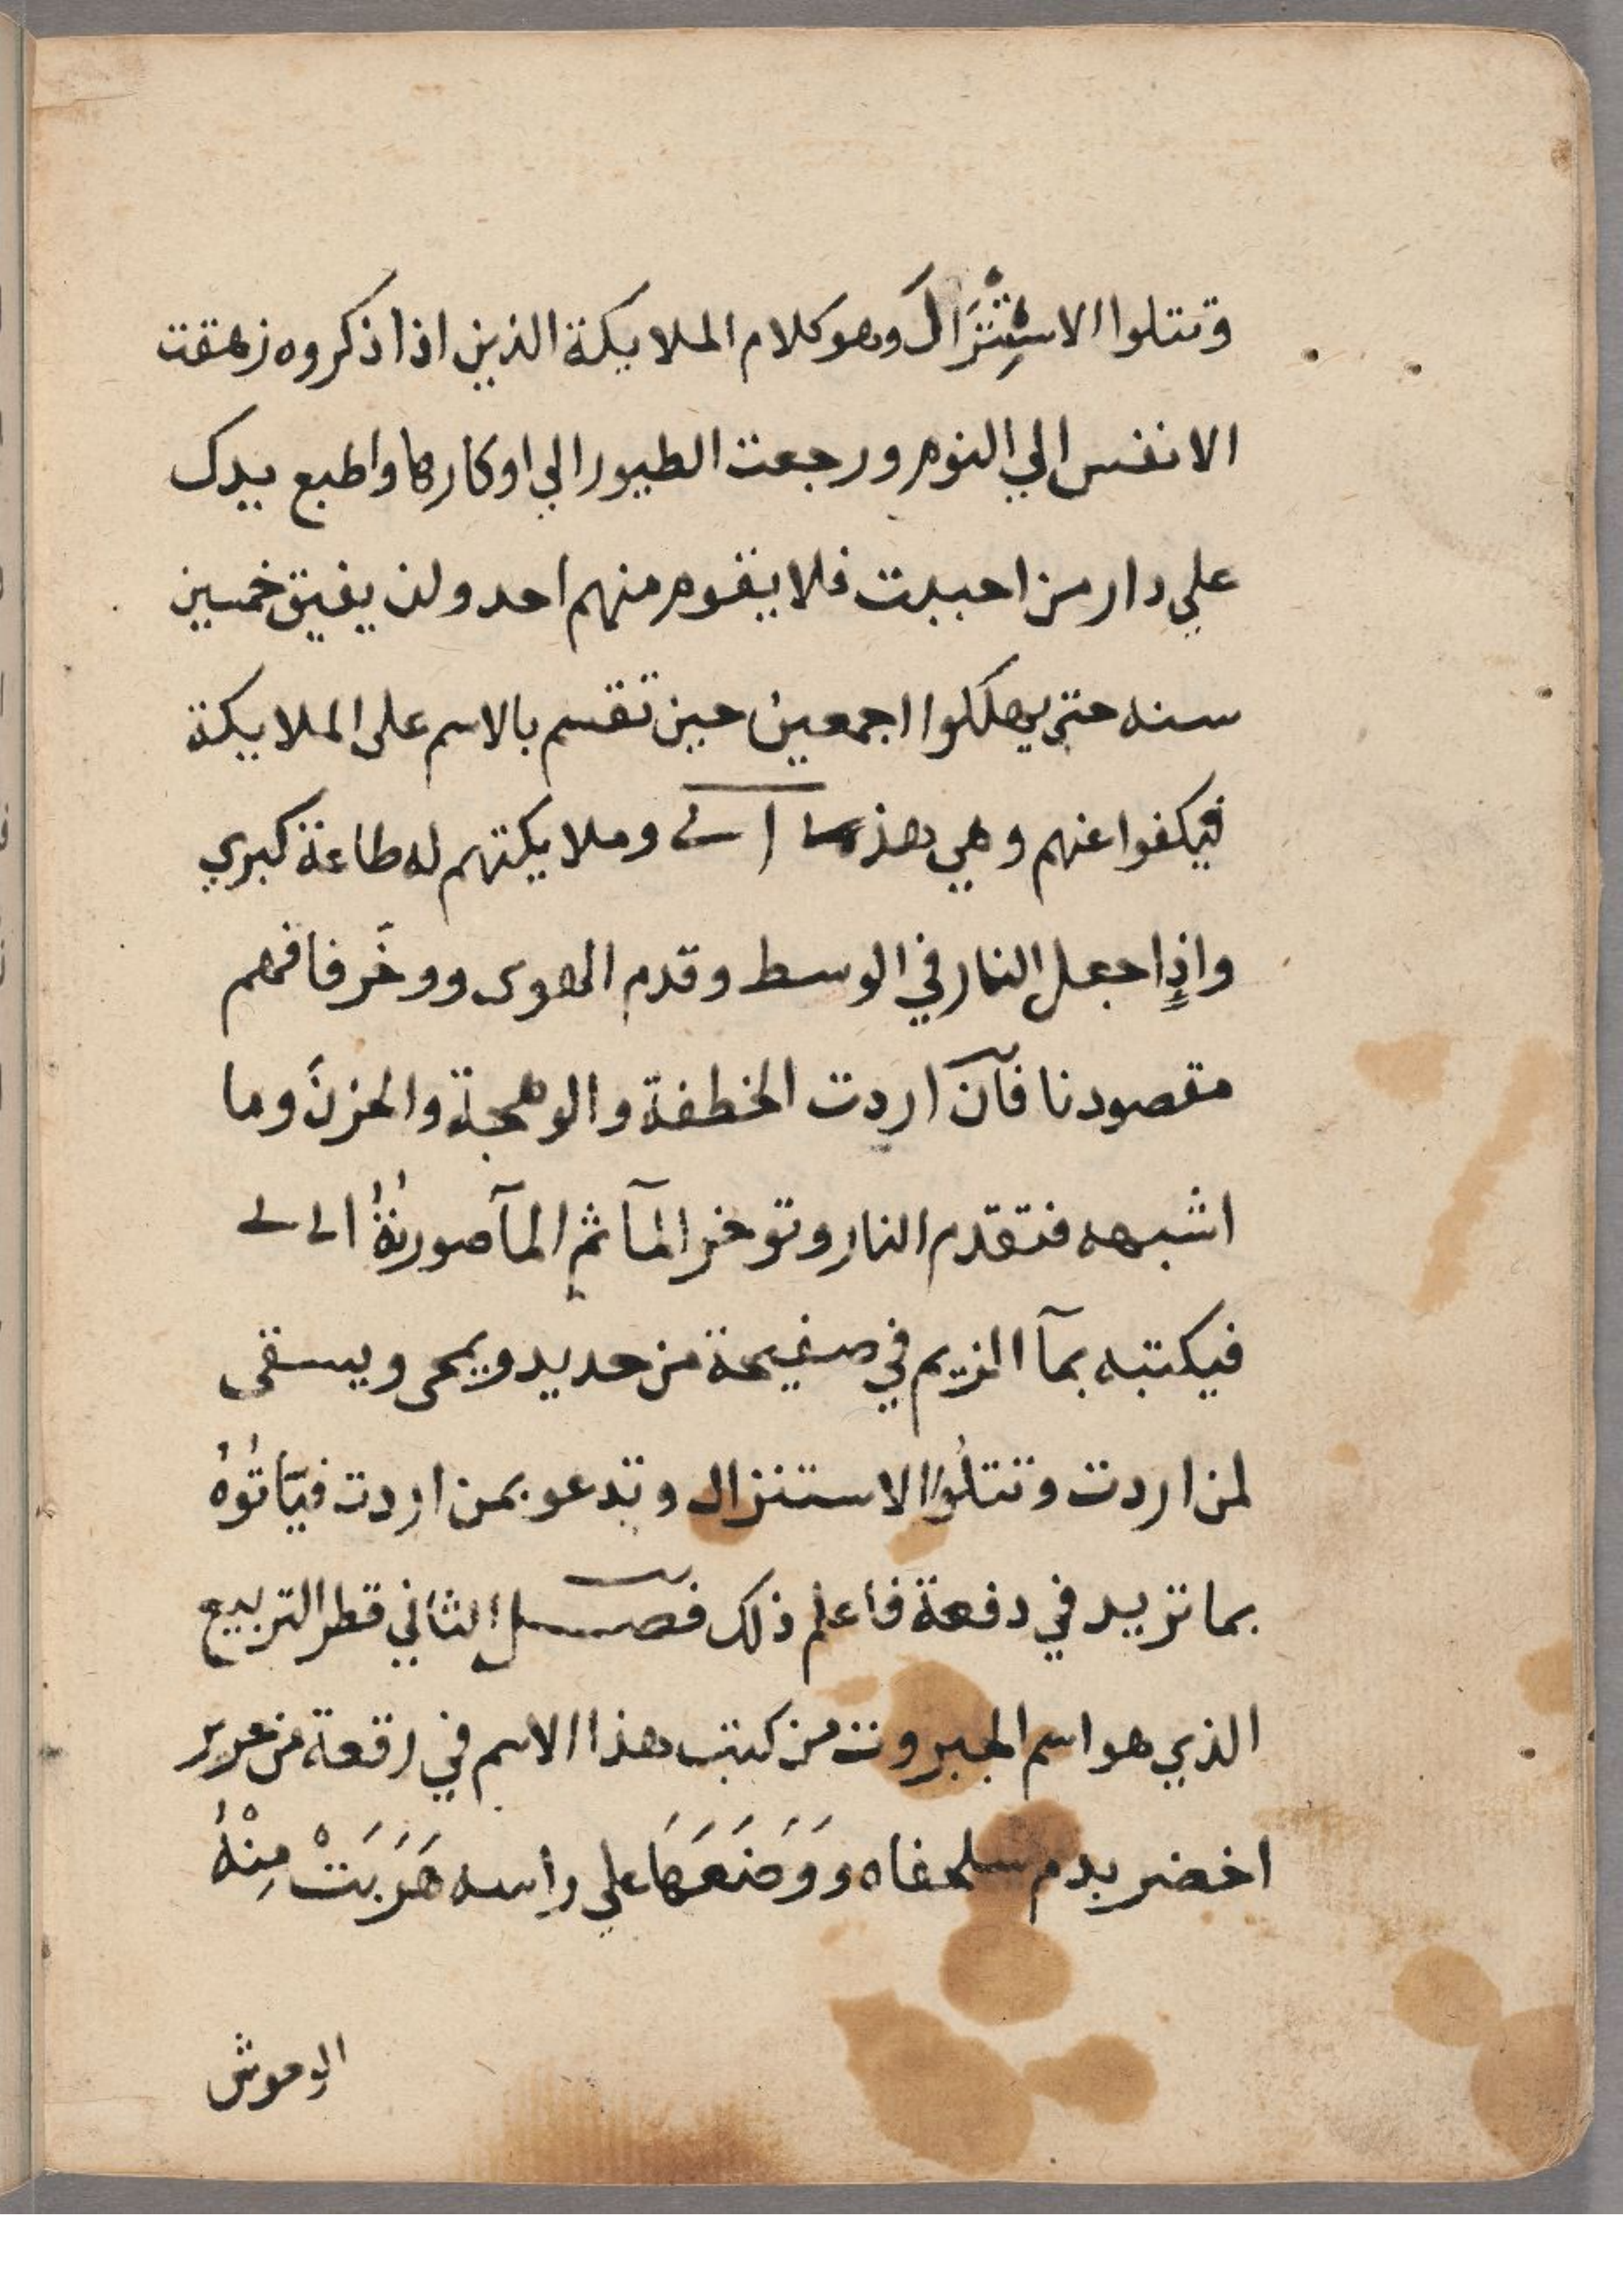 وتتلوا الاسْتِنْزَالَ وهو كلام الملايكة الذين اذا ذكروه زهقت
الانفس الي النوم ورجعت الطيور الي اوكارها واطبع بيدك
علي دار من احببت فلا يقوم منهم احد ولن يفيق خمسين
سنه حتي يهلكوا اجمعين حين تقسم بالاسم على الملايكة
فيكفوا عنهم وهي هذه وملايكتهم له طاعة كبري
واذا جعل النار في الوسط وقدم الهوى ووخَر فافهم
مقصودنا فان اردت الخطفة والوهجة والحزنَ وما
اشبهه فتقدم النار وتوخر المآ ثم المآ صورتهُ
فيكتبه بمآ المريم في صفيحة من حديد ويمحى ويسقى
لمن اردت وتتلُوا الاستنزال وتدعو بمن اردت فيَاتُوهُ
بما تريد في دفعة فاعلم ذلك فصل الثاني قطر التربيع
الذي هو اسم الجبروت من كتب هذا الاسم في رقعة من حرير
اخضر بدم سلحفاه ووَضَعَهَا علي راسه هَرَبَتْ مِنْهُ
الوحوش